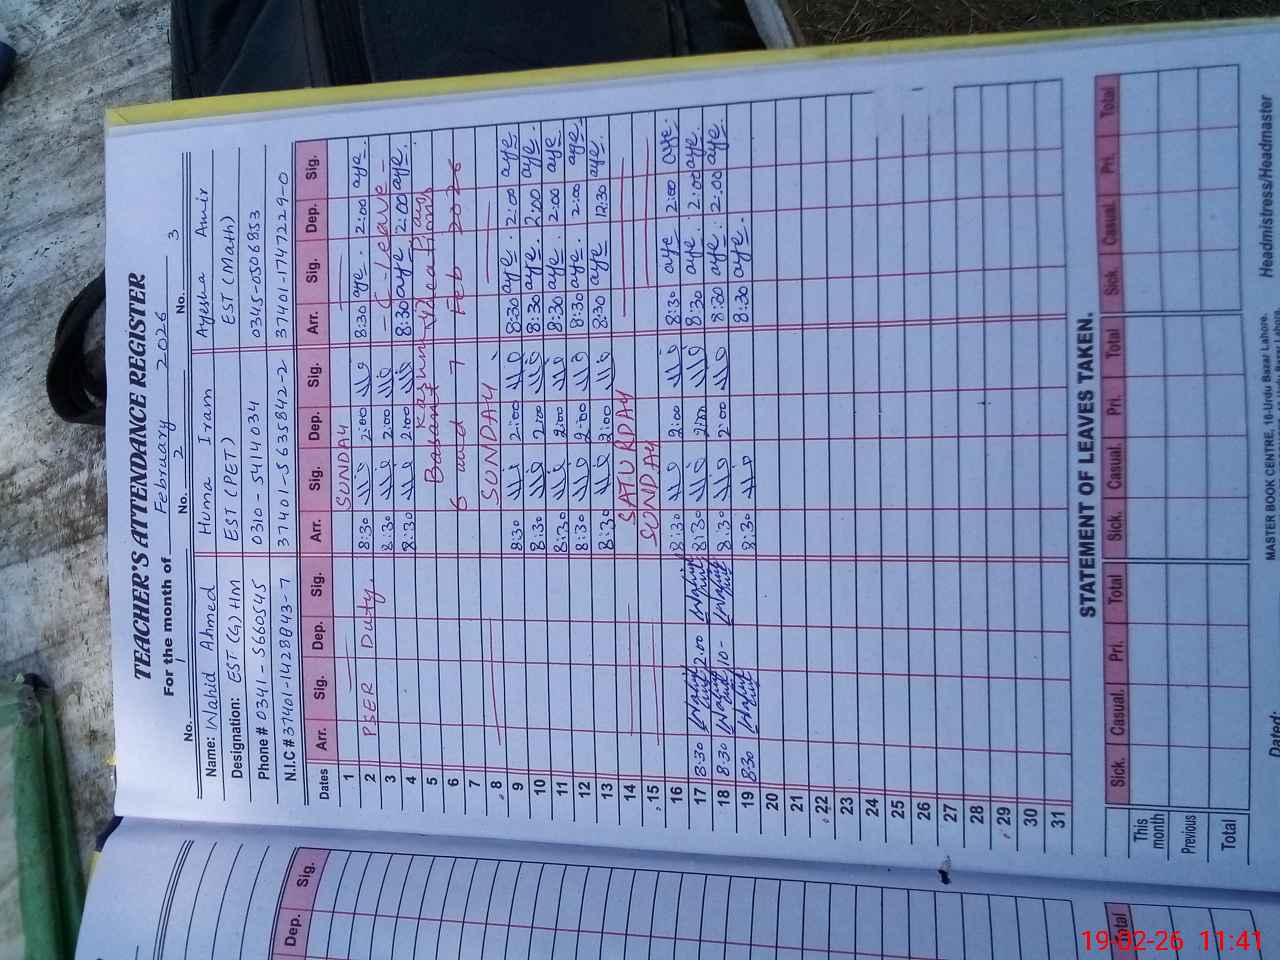 TEACHER'S ATTENDANCE REGISTER
For the month of February 2026
No. 1 No. 2 No. 3
Name: Wahid Ahmed Huma Iram Ayesha Amir
Designation: EST (G) HM EST (PET) EST (Math)
Phone # 0341-5660545 0310-5414034 0345-0506853
N.I.C # 37401-1428843-7 37401-5635842-2 37401-1747229-0
Dates Arr. Sig. Dep. Sig. Arr. Sig. Dep. Sig. Arr. Sig. Dep. Sig.
1 SUNDAY
2 PSER Duty. 8:30 2:00 8:30 aye. 2:00 aye.
3 8:30 2:00 - C-Leave -
4 8:30 2:00 8:30 aye 2:00 aye.
5 Kashmir Day
6 Basant Vacations
7 6 and 7 Feb 2026
8 SUNDAY
9 8:30 2:00 8:30 aye. 2:00 aye
10 8:30 2:00 8:30 aye. 2:00 aye.
11 8:30 2:00 8:30 aye. 2:00 aye
12 8:30 2:00 8:30 aye. 2:00 aye
13 8:30 2:00 8:30 aye 12:30 aye.
14 SATURDAY
15 SUNDAY
16 8:30 2:00 8:30 aye 2:00 aye.
17 8:30 2:00 8:30 2:00 8:30 aye. 2:00 aye.
18 8:30 10- 8:30 2:00 8:30 aye. 2:00 aye.
19 8:30 8:30 8:30 aye.
20
21
22
23
24
25
26
27
28
29
30
31
STATEMENT OF LEAVES TAKEN.
Sick. Casual. Pri. Total Sick. Casual. Pri. Total Sick. Casual. Pri. Total
This month
Previous
Total
Dated: Headmistress/Headmaster
MASTER BOOK CENTRE, 16-Urdu Bazar Lahore.
Dep. Sig.
Total
19-02-26 11:41